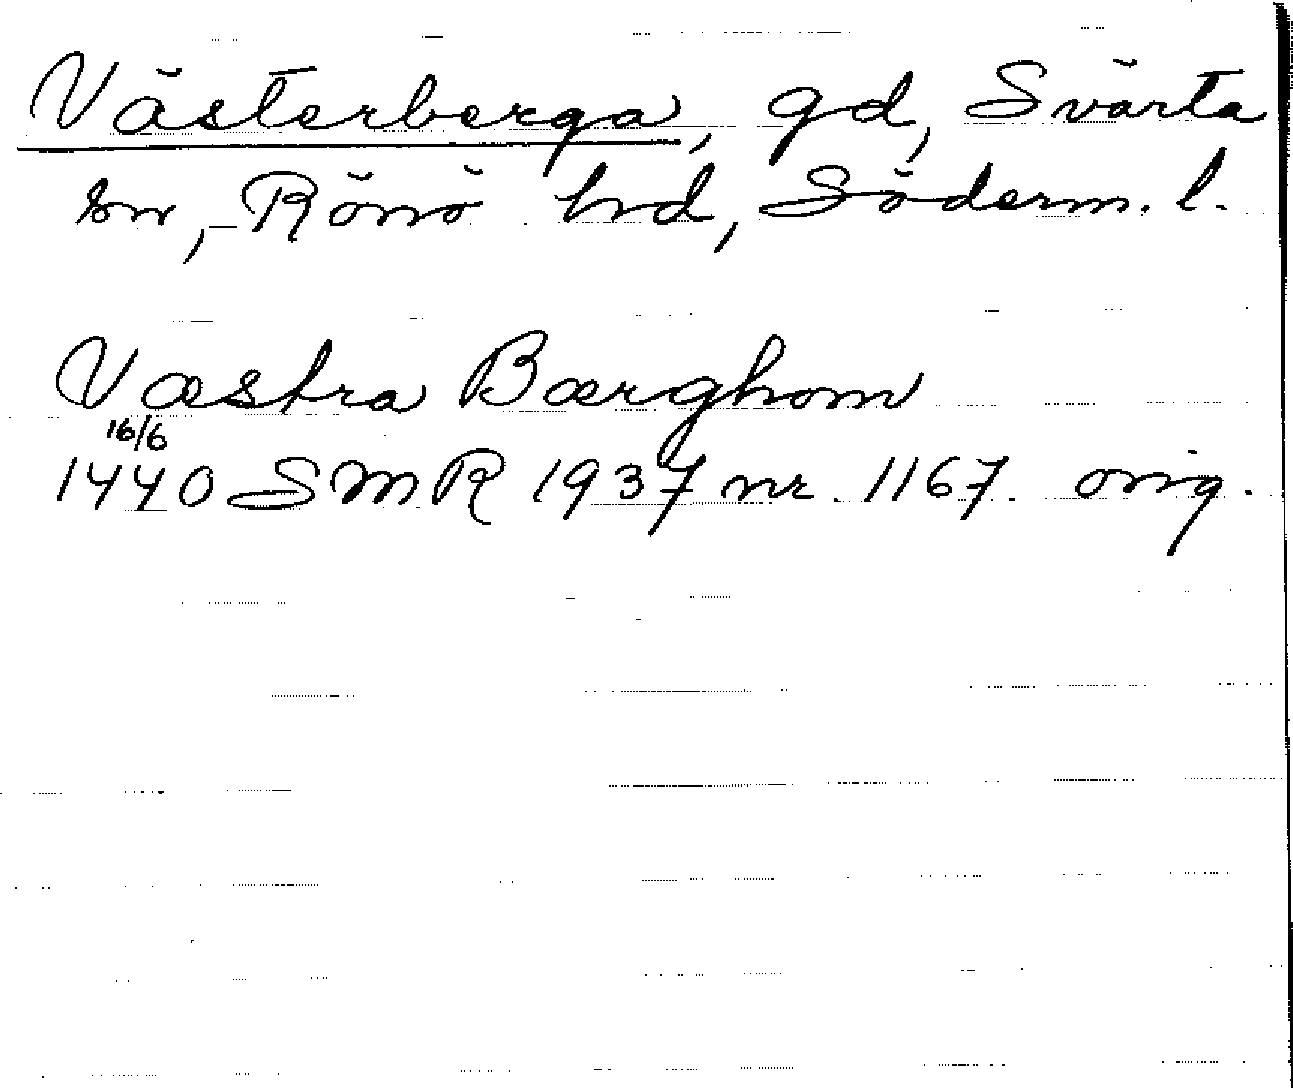 Västerberga, gd, Svärta
sn, Rönö hd, Söderm. l.
Væstra Bærghom
16/6
1440 SMR 1937 nr. 1167. orig.